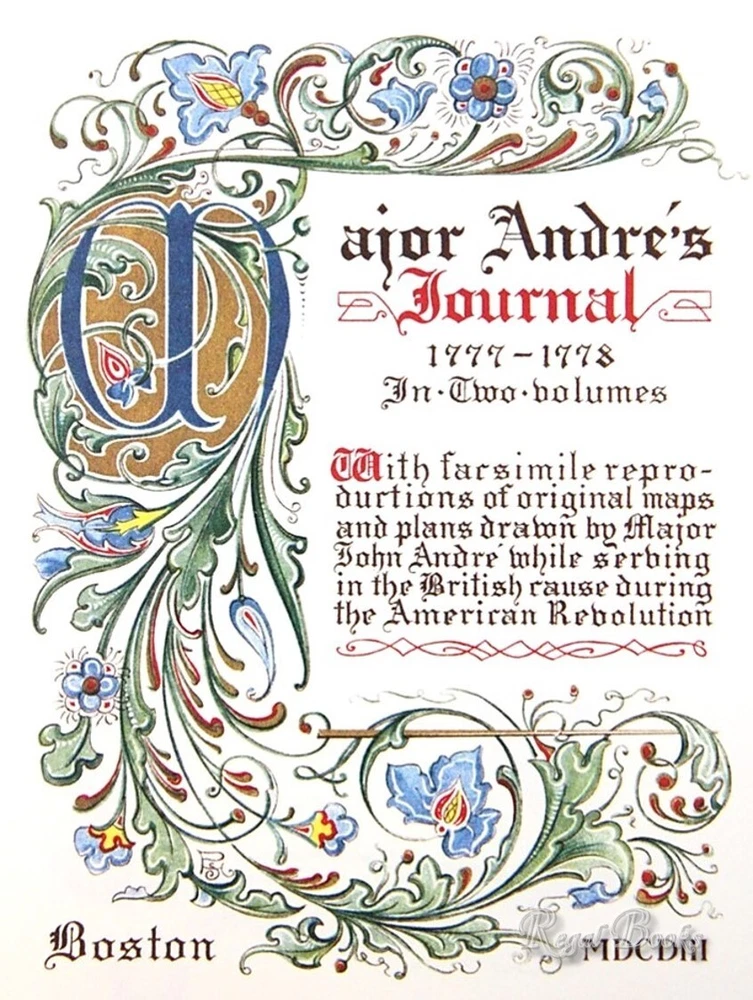 Major André's
Journal
1777–1778
In·Two·volumes
With facsimile repro-
ductions of original maps
and plans drawn by Major
John André while serving
in the British cause during
the American Revolution
Boston MDCDIII
Regal Books